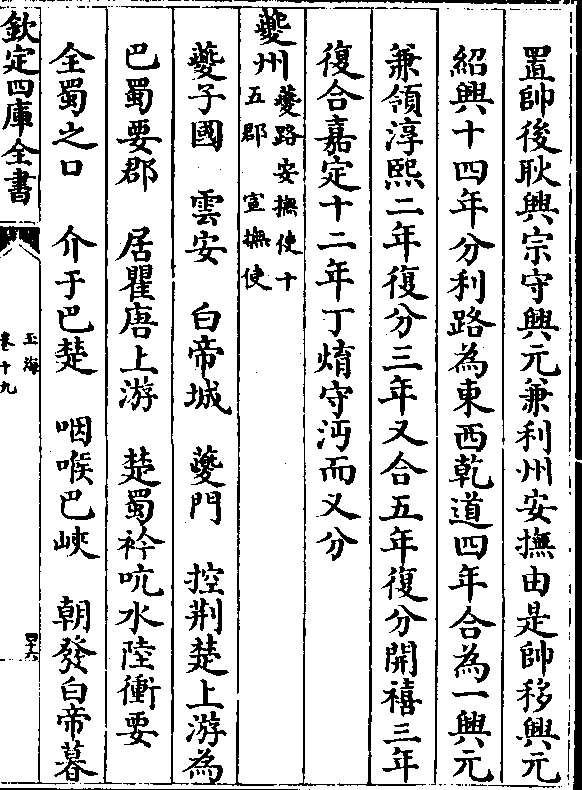 置帥後耿興宗守興元兼利州安撫由是帥移興元
紹興十四年分利路為東西乾道四年合為一興元
兼領淳熙二年復分三年又合五年復分開禧三年
復合嘉定十二年丁焴守沔而又分
夔州夔路安撫使十
五郡 宣撫使
夔子國 雲安 白帝城 夔門 控荆楚上游為
巴蜀要郡 居瞿唐上游 楚蜀衿吭水陸衝要
全蜀之口 介于巴楚 咽喉巴峽 朝發白帝暮
欽定四庫全書
玉海
卷十九